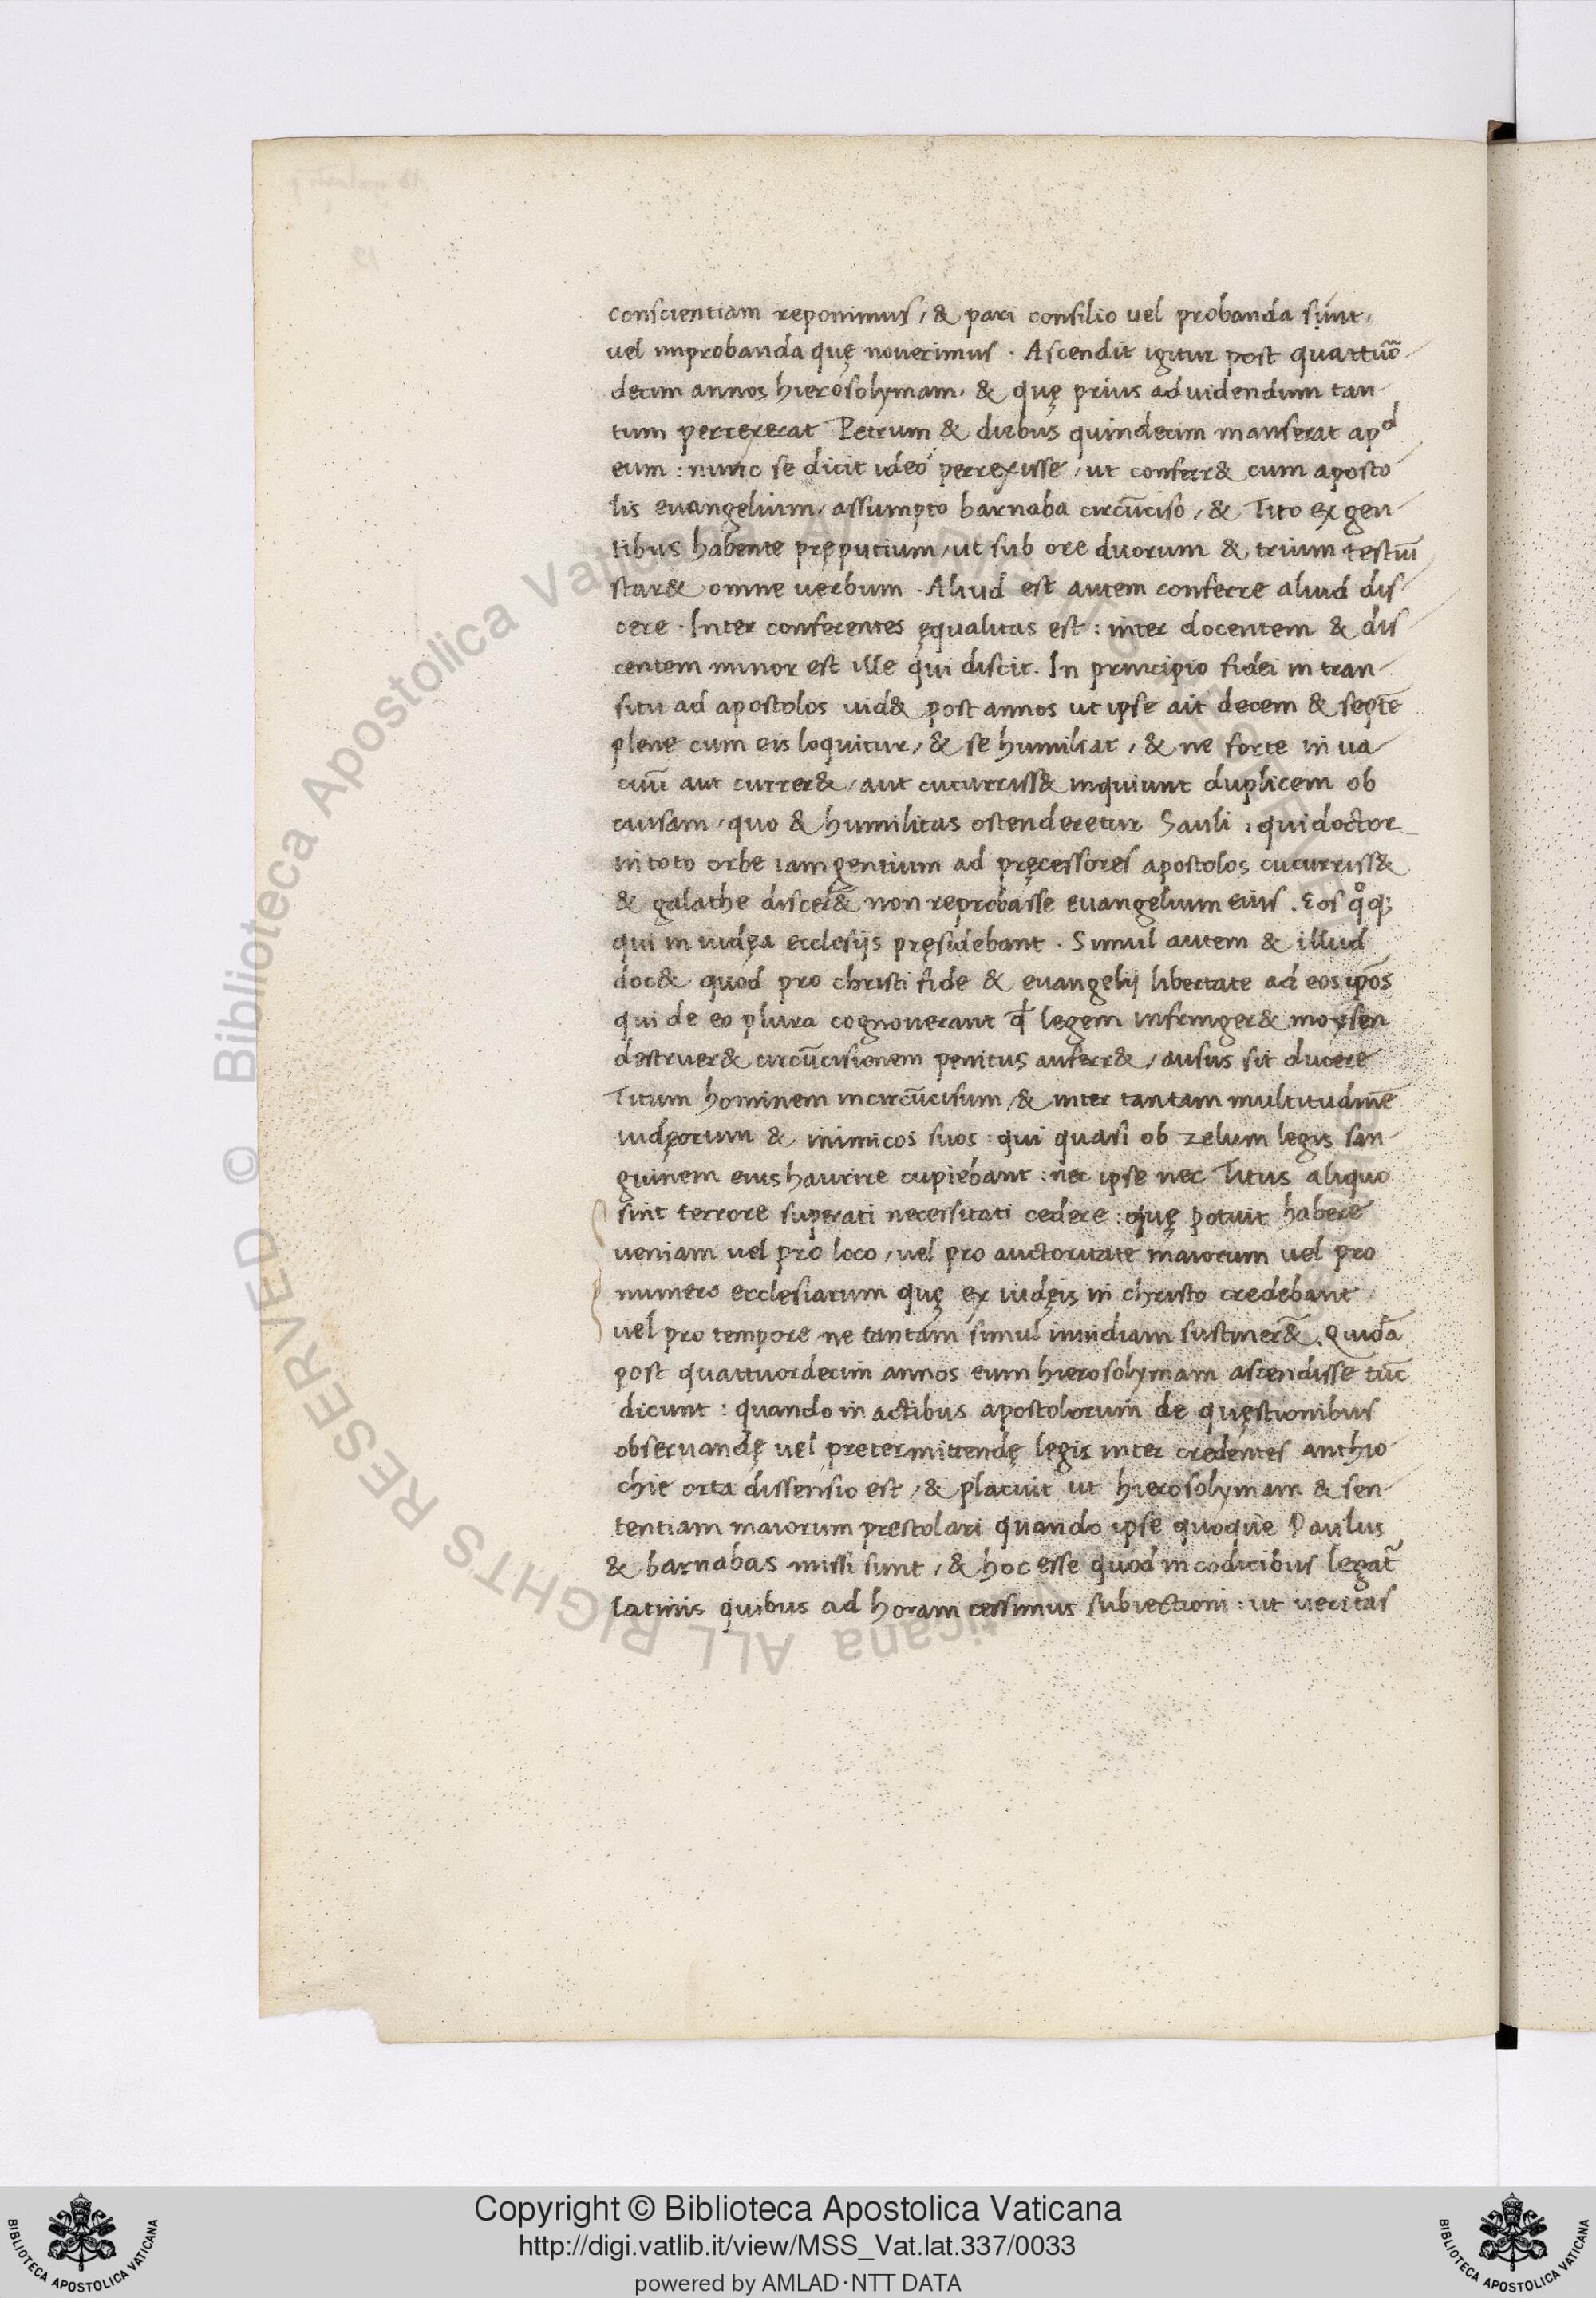 conscientiam reponimus, & pari consilio uel probanda sunt,
uel improbanda quę nouerimus. Ascendit igitur post quattuō
decim annos hierosolymam, & quę prius ad uidendum tan
tum perrexerat Petrum & diebus quindecim manserat apᵈ
eum: nunc se dicit ideo perrexisse, ut conferr& cum aposto
lis euangelium, assumpto barnaba circūciso, & Tito ex gen
tibus habente pręputium, ut sub ore duorum & trium testiū
star& omne uerbum. Aliud est autem conferre aliud dis
cere. Inter conferentes ęqualitas est: inter docentem & dis
centem minor est ille qui discit. In principio fidei in tran
situ ad apostolos uid& post annos ut ipse ait decem & septē
plene cum eis loquitur, & se humiliat, & ne forte in ua
cuū aut currer&, aut cucurriss& inquiunt duplicem ob
cuisam, quo & humilitas ostenderetur Sauli, qui doctor
in toto orbe iam gentium ad pręcessores apostolos cucurriss&
& galathe discer& non reprobasse euangelium eius. Eos qͦq;
qui in iudęa ecclesijs pręsidebant. Simul autem & illud
doc& quod pro christi fide & euangelij libertate ad eos ip̄os
qui de eo plura cognouerant ꝙ legem infringer& moysen
destruer& circūcisionem penitus auferr&, ausus sit ducere
Titum hominem incircūcisum, & inter tantam multitudinē
iudęorum & inimicos suos: qui quasi ob zelum legis san
guinem eius haurire cupiebant: nec ipse nec Titus aliquo
sint terrore superati necessitati cedere: quę potuit habere
ueniam uel pro loco, uel pro auctoritate maiorum uel pro
numero ecclesiarum quę ex iudęis in christo credebant
uel pro tempore ne tantam simul inuidiam sustiner&. Quidā
post quattuordecim annos eum hierosolymam ascendisse tūc
dicunt: quando in actibus apostolorum de quęstionibus
obseruandę uel pretermittendę legis inter credentes anthio
chie orta dissensio est, & placuit ut hierosolymam & sen
tentiam maiorum prestolari quando ipse quoque Paulus
& barnabas missi sunt, & hoc esse quod in codicibus legat̃
latinis quibus ad horam cessimus subiectioni: ut ueritas
© Biblioteca Apostolica Vaticana ALL RIGHTS RESERVED
Copyright © Biblioteca Apostolica Vaticana
http://digi.vatlib.it/view/MSS_Vat.lat.337/0033
powered by AMLAD·NTT DATA
BIBLIOTECA APOSTOLICA VATICANA
BIBLIOTECA APOSTOLICA VATICANA